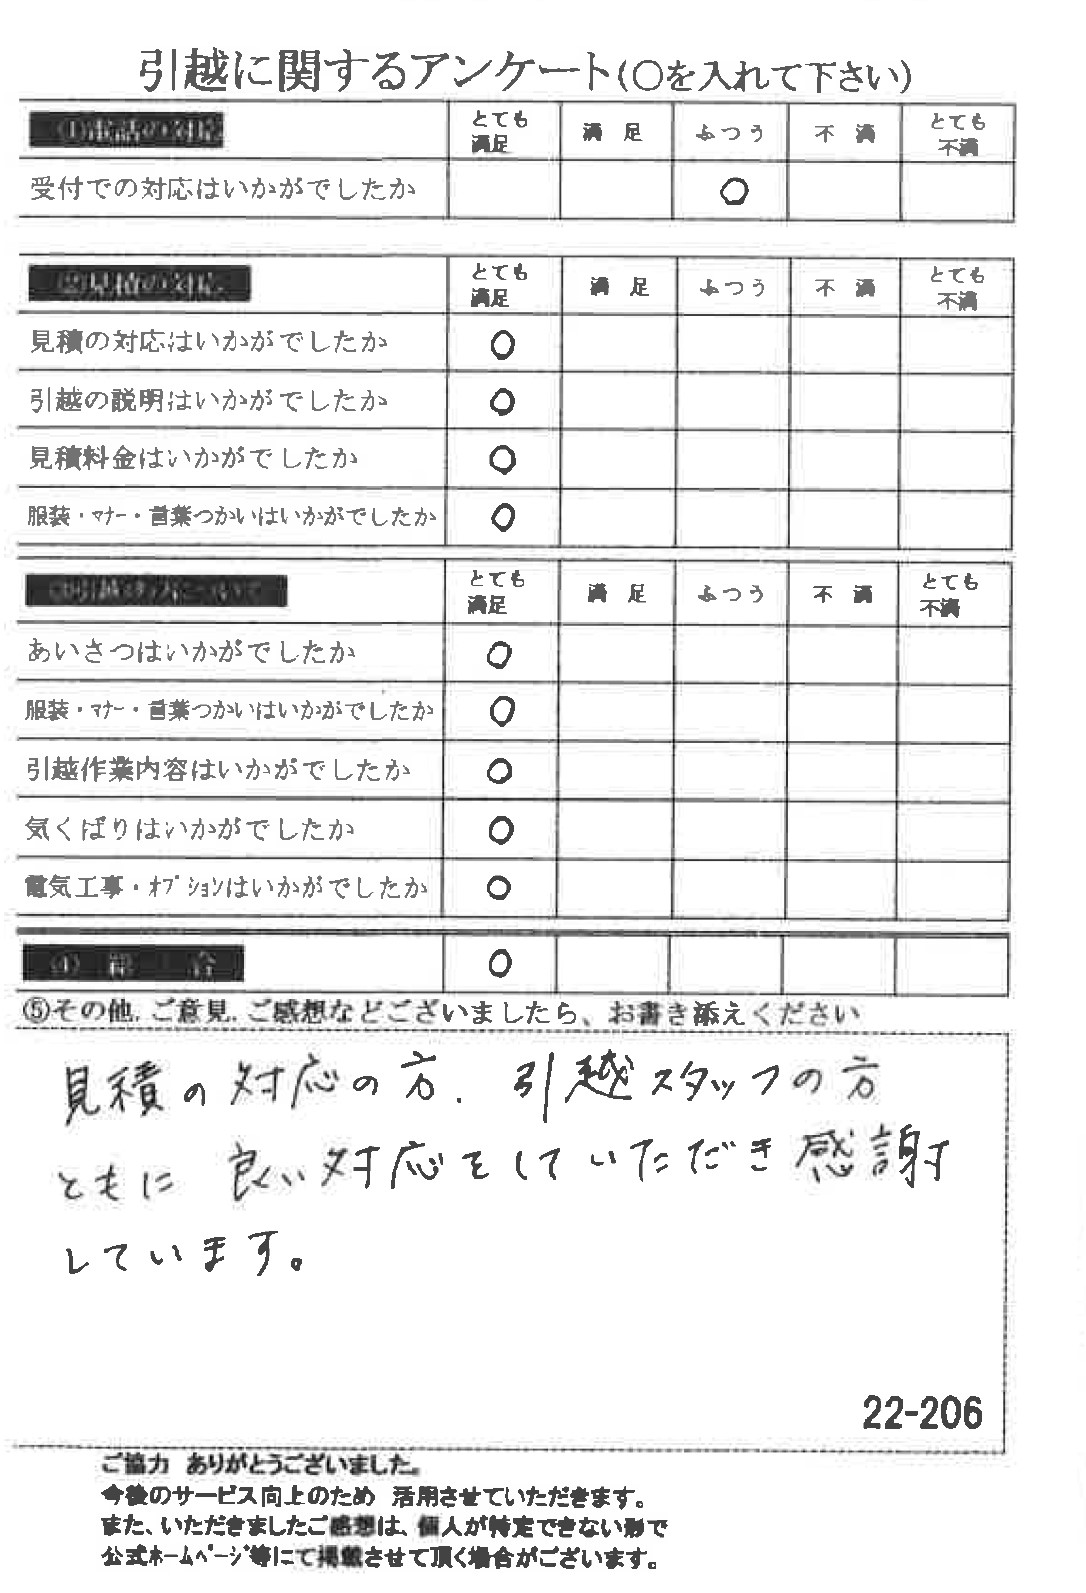 引越に関するアンケート(○を入れて下さい)
①電話の対応 とても満足 満 足 ふつう 不 満 とても不満
受付での対応はいかがでしたか ○
②見積の対応 とても満足 満 足 ふつう 不 満 とても不満
見積の対応はいかがでしたか ○
引越の説明はいかがでしたか ○
見積料金はいかがでしたか ○
服装・マナー・言葉つかいはいかがでしたか ○
③引越 ついて とても満足 満 足 ふつう 不 満 とても不満
あいさつはいかがでしたか ○
服装・マナー・言葉つかいはいかがでしたか ○
引越作業内容はいかがでしたか ○
気くばりはいかがでしたか ○
電気工事・オプションはいかがでしたか ○
④ 総 合 ○
⑤その他、ご意見、ご感想などございましたら、お書き添えください
見積の対応の方、引越スタッフの方
ともに良い対応をしていただき感謝
しています。
22-206
ご協力 ありがとうございました。
今後のサービス向上のため 活用させていただきます。
また、いただきましたご感想は、個人が特定できない形で
公式ホームページ等にて掲載させて頂く場合がございます。